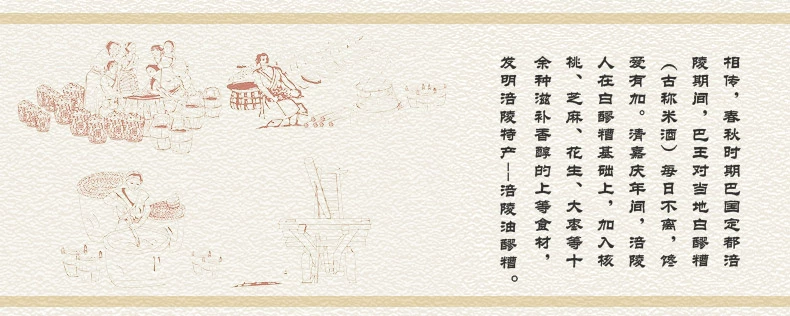 相传，春秋时期巴国定都涪
陵期间，巴王对当地白醪糟
（古称米酒）每日不离，馋
爱有加。清嘉庆年间，涪陵
人在白醪糟基础上，加入核
桃、芝麻、花生、大枣等十
余种滋补香醇的上等食材，
发明涪陵特产——涪陵油醪糟。